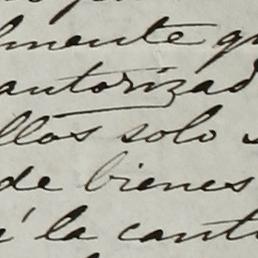 lmente q
autorizad
llos solo
de bienes
á la canti